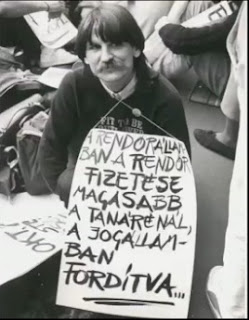 A RENDŐRÁLLAM-
BAN A RENDŐR
FIZETÉSE
MAGASABB
A TANÁRÉNÁL,
A JOGÁLLAM-
BAN
FORDÍTVA...